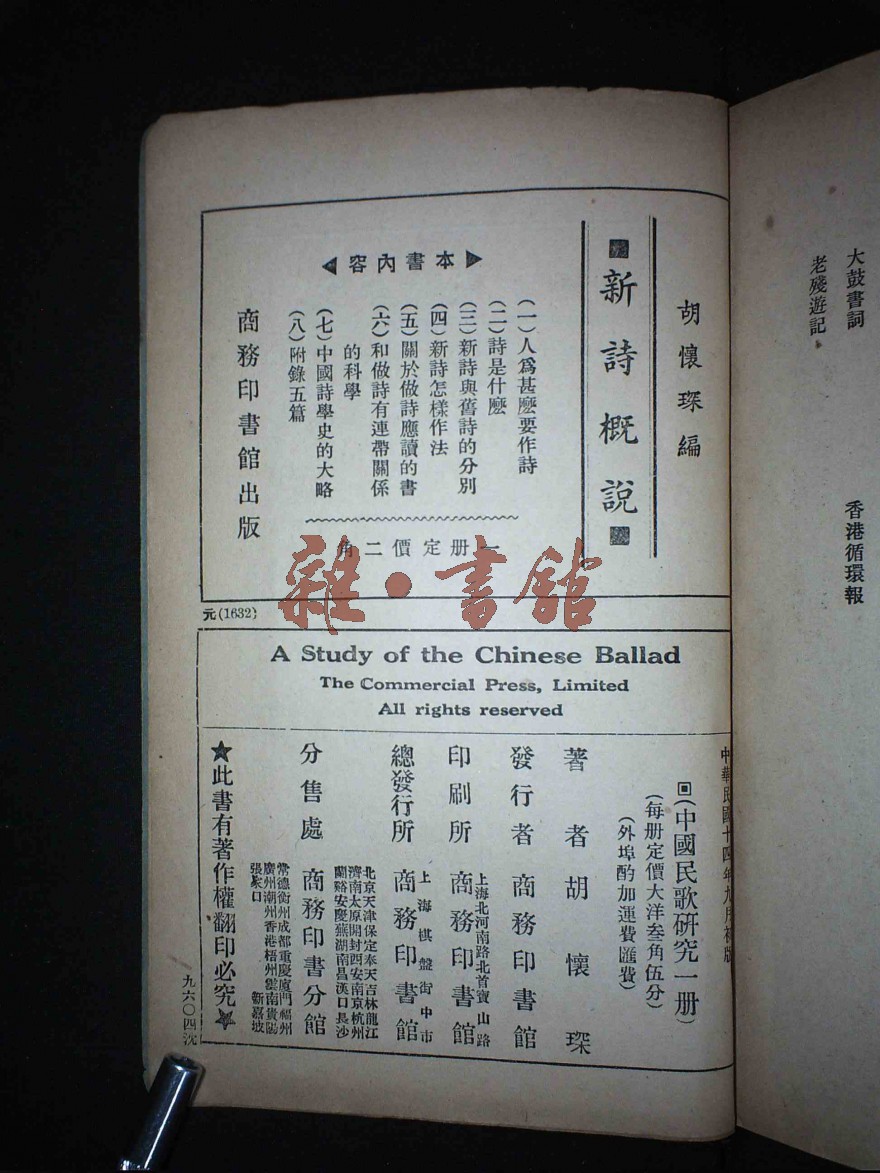 大鼓書詞 香港循環報
老殘遊記
胡懷琛編
新詩概說
本書內容
(一)人爲甚麼要作詩
(二)詩是什麼
(三)新詩與舊詩的分別
(四)新詩怎樣作法
(五)關於做詩應讀的書
(六)和做詩有連帶關係
的科學
(七)中國詩學史的大略
(八)附錄五篇
一册定價二角
商務印書館出版
元(1632)
雜·書館
A Study of the Chinese Ballad
The Commercial Press, Limited
All rights reserved
中華民國十四年九月初版
(中國民歌研究一册)
(每册定價大洋叁角伍分)
(外埠酌加運費匯費)
著者 胡懷琛
發行者 商務印書館
上海北河南路北首寶山路
印刷所 商務印書館
上海棋盤街中市
總發行所 商務印書館
北京天津保定奉天吉林龍江
濟南太原開封西安南京杭州
蘭谿安慶蕪湖南昌漢口長沙
分售處 商務印書分館
常德衡州成都重慶廈門福州
廣州潮州香港梧州雲南貴陽
張家口 新嘉坡
★此書有著作權翻印必究★
九六〇四沈